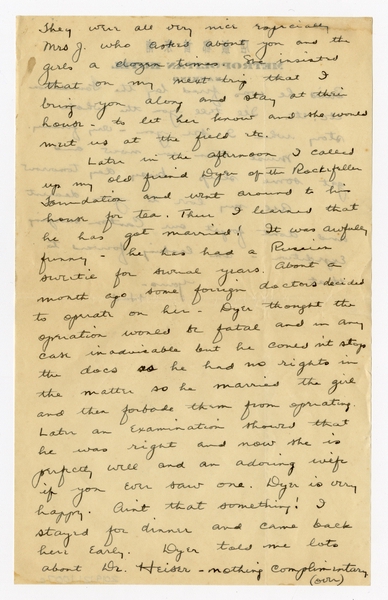 They were all very nice especially
Mrs J. who asked about you and the
girls a dozen times. She insisted
that on my next trip that I
bring you along and stay at their
house - to let her know and she would
meet us at the field etc.
Later in the afternoon I called
up my old friend Dyer of the Rockefeller
Foundation and went around to his
house for tea. There I learned that
he has got married! It was awfully
funny - he has had a Russian
sweetie for several years. About a
month ago some foreign doctors decided
to operate on her - Dyer thought the
operation would be fatal and in any
case inadvisable but he couldn't stop
the docs as he had no rights in
the matter so he married the girl
and then forbade them from operating.
Later an Examination showed that
he was right and now she is
perfectly well and an adoring wife
if you ever saw one. Dyer is very
happy. Aint that something! I
stayed for dinner and came back
here Early. Dyer told me lots
about Dr. Heiser - nothing complimentary
(over)